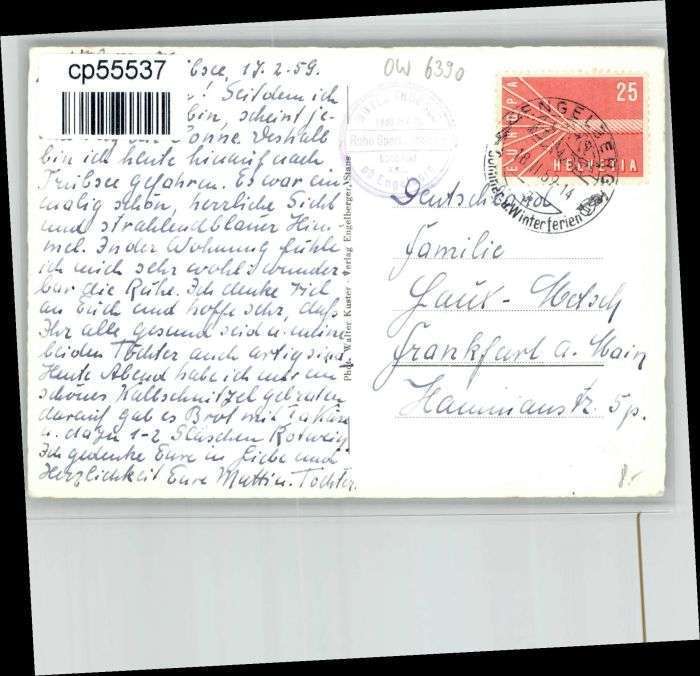 cp55537
bsee, 17.2.59.
! Seitdem ich
bin, scheint je-
Sonne. Deshalb
bin ich heute hinauf nach
Trübsee gefahren. Es war ein
malig schön, herrliche Sicht
und strahlendblauer Him-
mel. In der Wohnung fühle
ich mich sehr wohl: wunder
bar die Ruhe. Ich denke viel
an Euch und hoffe sehr, daß
Ihr alle gesund seid u. meine
beiden Töchter auch artig sind.
Heute Abend habe ich mir ein
schönes Kalbschnitzel gebraten
darauf gab es Brot mit
u. dazu 1-2 Fläschen Rotwein
Ich gedenke Eure in Liebe und
Herzlichkeit Eure Mutti u. Tochter.
Photo Walter Kuster - Verlag Engelberger, Stans
OW 6390
EUROPA
25
HELVETIA
ENGELBERG
18.II.59-14
Winterferien
Deutschland
Familie
Gauk-Motsch
Frankfurt a. Main
Hammanstr. 5p.
8.-